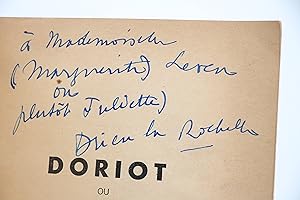 à Mademoiselle
(Marguerite) Leven
ou
plutôt Juliette)
Drieu la Rochelle
DORIOT
OU